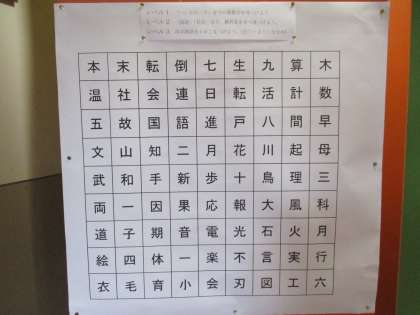 本 末 転 倒 七 生 九 算 木
温 社 会 連 日 転 活 計 数
五 故 国 語 進 戸 八 間 早
文 山 知 二 月 花 川 起 母
武 和 手 新 歩 十 鳥 理 三
両 一 因 果 応 報 大 風 科
道 子 期 音 電 光 石 火 月
絵 四 体 一 楽 不 言 実 行
衣 毛 育 小 会 刃 図 工 六